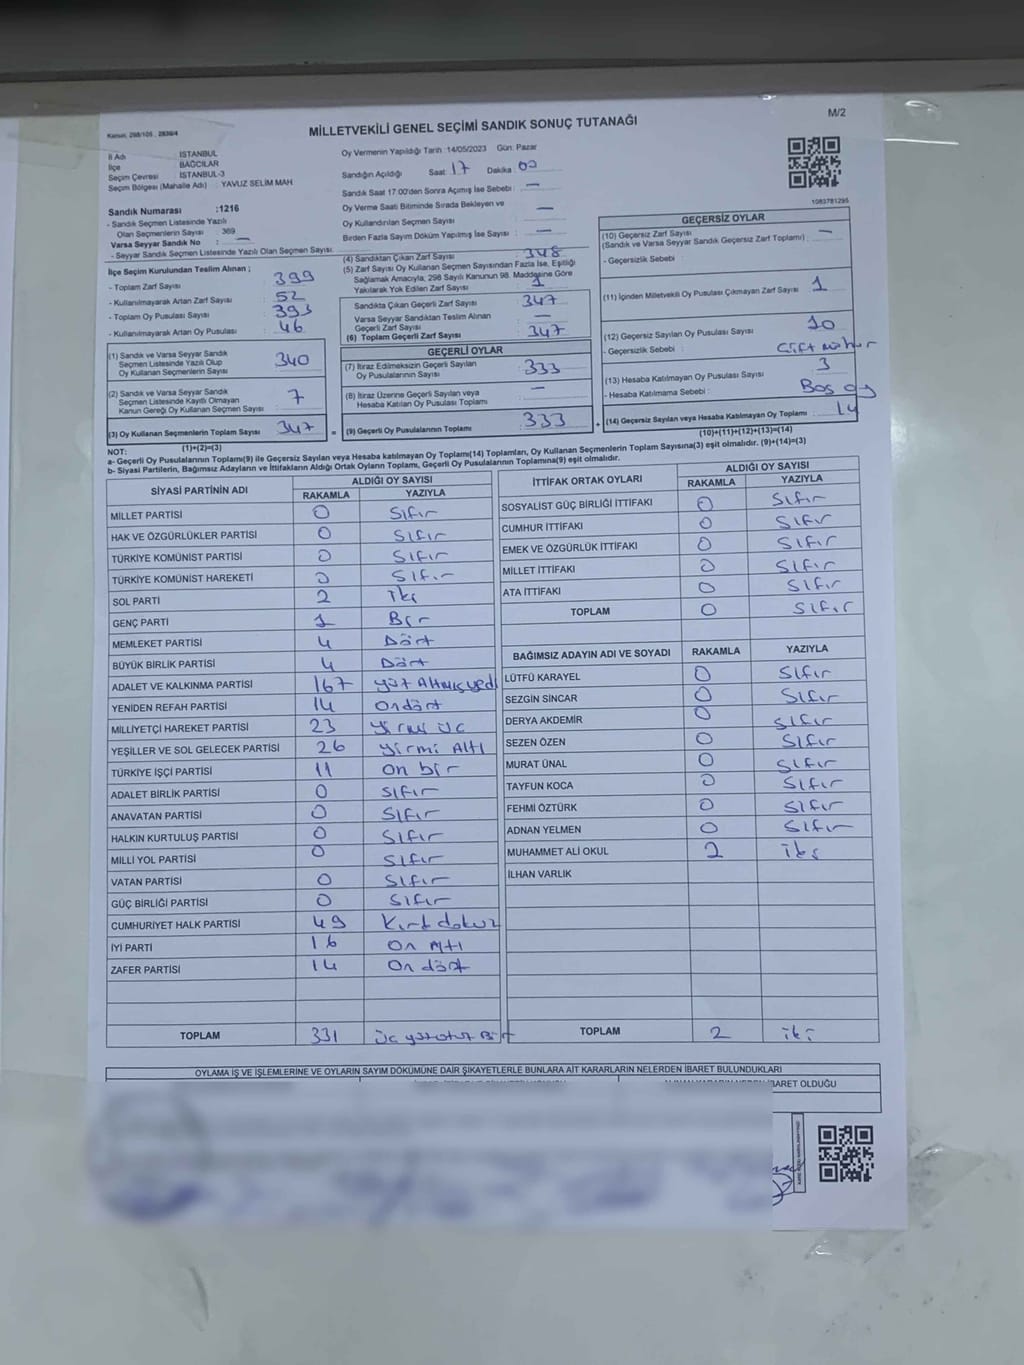 M/2
Kanun: 298/105 , 2839/4
MİLLETVEKİLİ GENEL SEÇİMİ SANDIK SONUÇ TUTANAĞI
İl Adı İSTANBUL
İlçe BAĞCILAR
Seçim Çevresi İSTANBUL-3
Seçim Bölgesi (Mahalle Adı) : YAVUZ SELİM MAH
Oy Vermenin Yapıldığı Tarih :14/05/2023 Gün: Pazar
Sandığın Açıldığı Saat : 17 Dakika : 00
Sandık Saat 17:00'den Sonra Açımış İse Sebebi : —
Oy Verme Saati Bitiminde Sırada Bekleyen ve
Oy Kullandırılan Seçmen Sayısı : —
Birden Fazla Sayım Döküm Yapılmış İse Sayısı : —
1083781295
Sandık Numarası :1216
- Sandık Seçmen Listesinde Yazılı
Olan Seçmenlerin Sayısı : 369
Varsa Seyyar Sandık No : —
- Seyyar Sandık Seçmen Listesinde Yazılı Olan Seçmen Sayısı:
İlçe Seçim Kurulundan Teslim Alınan ;
- Toplam Zarf Sayısı : 399
- Kullanılmayarak Artan Zarf Sayısı : 52
- Toplam Oy Pusulası Sayısı : 393
- Kullanılmayarak Artan Oy Pusulası : 46
(1) Sandık ve Varsa Seyyar Sandık
Seçmen Listesinde Yazılı Olup
Oy Kullanan Seçmenlerin Sayısı : 340
(2) Sandık ve Varsa Seyyar Sandık
Seçmen Listesinde Kayıtlı Olmayan
Kanun Gereği Oy Kullanan Seçmen Sayısı : 7
(3) Oy Kullanan Seçmenlerin Toplam Sayısı : 347
(1)+(2)=(3)
(4) Sandıktan Çıkan Zarf Sayısı : 348
(5) Zarf Sayısı Oy Kullanan Seçmen Sayısından Fazla İse, Eşitliği
Sağlamak Amacıyla; 298 Sayılı Kanunun 98. Maddesine Göre
Yakılarak Yok Edilen Zarf Sayısı : 1
Sandıkta Çıkan Geçerli Zarf Sayısı : 347
Varsa Seyyar Sandıktan Teslim Alınan
Geçerli Zarf Sayısı : —
(6) Toplam Geçerli Zarf Sayısı : 347
GEÇERLİ OYLAR
(7) İtiraz Edilmeksizin Geçerli Sayılan
Oy Pusulalarının Sayısı : 333
(8) İtiraz Üzerine Geçerli Sayılan veya
Hesaba Katılan Oy Pusulası Toplamı : —
= (9) Geçerli Oy Pusulalarının Toplamı : 333
GEÇERSİZ OYLAR
(10) Geçersiz Zarf Sayısı
(Sandık ve Varsa Seyyar Sandık Geçersiz Zarf Toplamı) : —
- Geçersizlik Sebebi :
(11) İçinden Milletvekili Oy Pusulası Çıkmayan Zarf Sayısı : 1
(12) Geçersiz Sayılan Oy Pusulası Sayısı : 10
- Geçersizlik Sebebi : Çift mühür
(13) Hesaba Katılmayan Oy Pusulası Sayısı : 3
- Hesaba Katılmama Sebebi : Boş oy
+ (14) Geçersiz Sayılan veya Hesaba Katılmayan Oy Toplamı : 14
(10)+(11)+(12)+(13)=(14)
NOT:
a- Geçerli Oy Pusulalarının Toplamı(9) ile Geçersiz Sayılan veya Hesaba katılmayan Oy Toplamı(14) Toplamları, Oy Kullanan Seçmenlerin Toplam Sayısına(3) eşit olmalıdır. (9)+(14)=(3)
b- Siyasi Partilerin, Bağımsız Adayların ve İttifakların Aldığı Ortak Oyların Toplamı, Geçerli Oy Pusulalarının Toplamına(9) eşit olmalıdır.
SİYASİ PARTİNİN ADI ALDIĞI OY SAYISI
RAKAMLA YAZIYLA
MİLLET PARTİSİ 0 Sıfır
HAK VE ÖZGÜRLÜKLER PARTİSİ 0 Sıfır
TÜRKİYE KOMÜNİST PARTİSİ 0 Sıfır
TÜRKİYE KOMÜNİST HAREKETİ 0 Sıfır
SOL PARTİ 2 İki
GENÇ PARTİ 1 Bir
MEMLEKET PARTİSİ 4 Dört
BÜYÜK BİRLİK PARTİSİ 4 Dört
ADALET VE KALKINMA PARTİSİ 167 yüz Altmış yedi
YENİDEN REFAH PARTİSİ 14 Ondört
MİLLİYETÇİ HAREKET PARTİSİ 23 yirmi üç
YEŞİLLER VE SOL GELECEK PARTİSİ 26 yirmi Altı
TÜRKİYE İŞÇİ PARTİSİ 11 on bir
ADALET BİRLİK PARTİSİ 0 sıfır
ANAVATAN PARTİSİ 0 Sıfır
HALKIN KURTULUŞ PARTİSİ 0 Sıfır
MİLLİ YOL PARTİSİ 0 Sıfır
VATAN PARTİSİ 0 Sıfır
GÜÇ BİRLİĞİ PARTİSİ 0 Sıfır
CUMHURİYET HALK PARTİSİ 49 Kırk dokuz
İYİ PARTİ 16 On Altı
ZAFER PARTİSİ 14 On dört
TOPLAM 331 üç yüz otuz Bir
İTTİFAK ORTAK OYLARI ALDIĞI OY SAYISI
RAKAMLA YAZIYLA
SOSYALİST GÜÇ BİRLİĞİ İTTİFAKI 0 Sıfır
CUMHUR İTTİFAKI 0 Sıfır
EMEK VE ÖZGÜRLÜK İTTİFAKI 0 Sıfır
MİLLET İTTİFAKI 0 Sıfır
ATA İTTİFAKI 0 Sıfır
TOPLAM 0 Sıfır
BAĞIMSIZ ADAYIN ADI VE SOYADI RAKAMLA YAZIYLA
LÜTFÜ KARAYEL 0 Sıfır
SEZGİN SİNCAR 0 Sıfır
DERYA AKDEMİR 0 Sıfır
SEZEN ÖZEN 0 Sıfır
MURAT ÜNAL 0 Sıfır
TAYFUN KOCA 0 Sıfır
FEHMİ ÖZTÜRK 0 Sıfır
ADNAN YELMEN 0 Sıfır
MUHAMMET ALİ OKUL 2 iki
İLHAN VARLIK
TOPLAM 2 iki
OYLAMA İŞ VE İŞLEMLERİNE VE OYLARIN SAYIM DÖKÜMÜNE DAİR ŞİKAYETLERLE BUNLARA AİT KARARLARIN NELERDEN İBARET BULUNDUKLARI
İBARET OLDUĞU